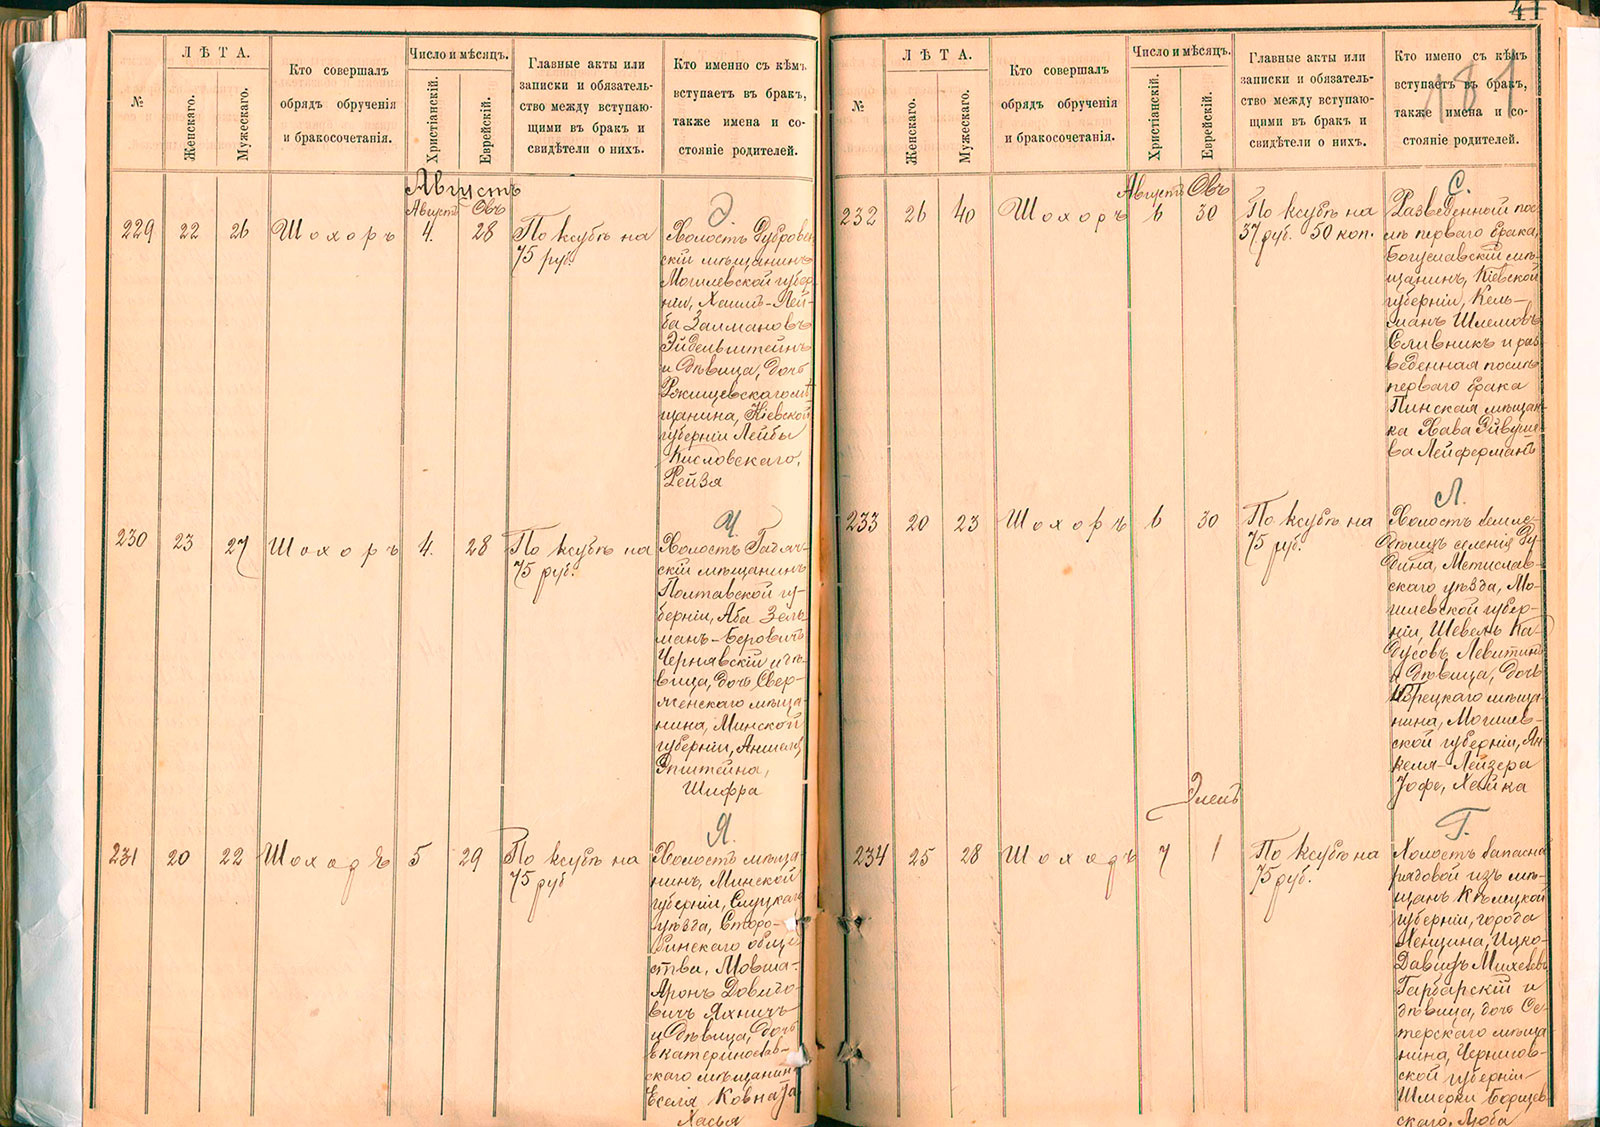 41
181
ЛѢТА.
Число и мѣсяцъ.
№
Женскаго.
Мужескаго.
Кто совершалъ
обрядъ обрученія
и бракосочетанія.
Христіанскій.
Еврейскій.
Главные акты или
записки и обязатель-
ство между вступаю-
щими въ бракъ и
свидѣтели о нихъ.
Кто именно съ кѣмъ
вступаетъ въ бракъ,
также имена и со-
стояніе родителей.
Августъ
Августъ Овъ
229 22 26 Шохоръ 4. 28
По ксубѣ на
75 руб.
Э.
Холостъ Дубровен
скій мѣщанинъ
Могилевской губер
ніи, Хаимъ-Лей-
ба Залмановъ
Эйдельштейнъ
и дѣвица, дочь
Ржищевскаго мѣ
щанина, Кіевской
губерніи Лейбы
Кисловскаго,
Рейзя
230 23 27 Шохоръ 4. 28
По ксубѣ на
75 руб.
Ч.
Холостъ Гадяч-
скій мѣщанинъ
Полтавской гу-
берніи, Аба Зель-
манъ-Беровичъ
Чернявскій и дѣ-
вица, дочь Свер-
женскаго мѣща-
нина, Минской
губерніи, Аншеля
Эпштейна,
Шифра
231 20 22 Шохоръ 5 29
По ксубѣ на
75 руб
Я.
Холостъ мѣща-
нинъ, Минской
губерніи, Слуцкаго
уѣзда, Старо-
бинскаго обще
ства, Мовша-
Аронъ Довидо-
вичъ Яхничъ
и дѣвица, дочь
Екатеринослав-
скаго мѣщанин
Еселя Ковна
Хасья
ЛѢТА.
Число и мѣсяцъ.
№
Женскаго.
Мужескаго.
Кто совершалъ
обрядъ обрученія
и бракосочетанія.
Христіанскій.
Еврейскій.
Главные акты или
записки и обязатель-
ство между вступаю-
щими въ бракъ и
свидѣтели о нихъ.
Кто имено съ кѣмъ
вступаетъ въ бракъ,
также имена и со-
стояніе родителей.
Августъ Овъ
232 26 40 Шохоръ 6 30
По ксубѣ на
37 руб. 50 коп.
С.
Разведенный пос
лѣ перваго брака,
Богуславскій мѣ
щанинъ, Кіевской
губерніи, Кель-
манъ Шлемовъ
Сливникъ и раз
веденная послѣ
перваго брака
Пинская мѣщан-
ка Хава
ва Лейферманъ
233 20 23 Шохоръ 6 30
По ксубѣ на
75 руб.
Л.
Холостъ земле-
дѣлецъ селенія Ру
дина, Мстислав-
скаго уѣзда, Мо-
гилевской губер-
ніи, Шевель Ка-
дусовъ Левитинъ
и дѣвица, дочь
мѣща-
нина, Могилев-
ской губерніи, Ян-
келя-Лейзера
Іофе, Хейка
Элень
234 25 28 Шохоръ 7 1
По ксубѣ на
75 руб.
Г.
Холостъ запасной
рядовой изъ мѣ-
щанъ Кѣлецкой
губерніи, города
Ицко-
Давидъ
Гарбарскій и
дѣвица, дочь Ос-
терскаго мѣща
нина, Чернигов-
ской губерніи
Шмерки Борщев-
скаго, Люба